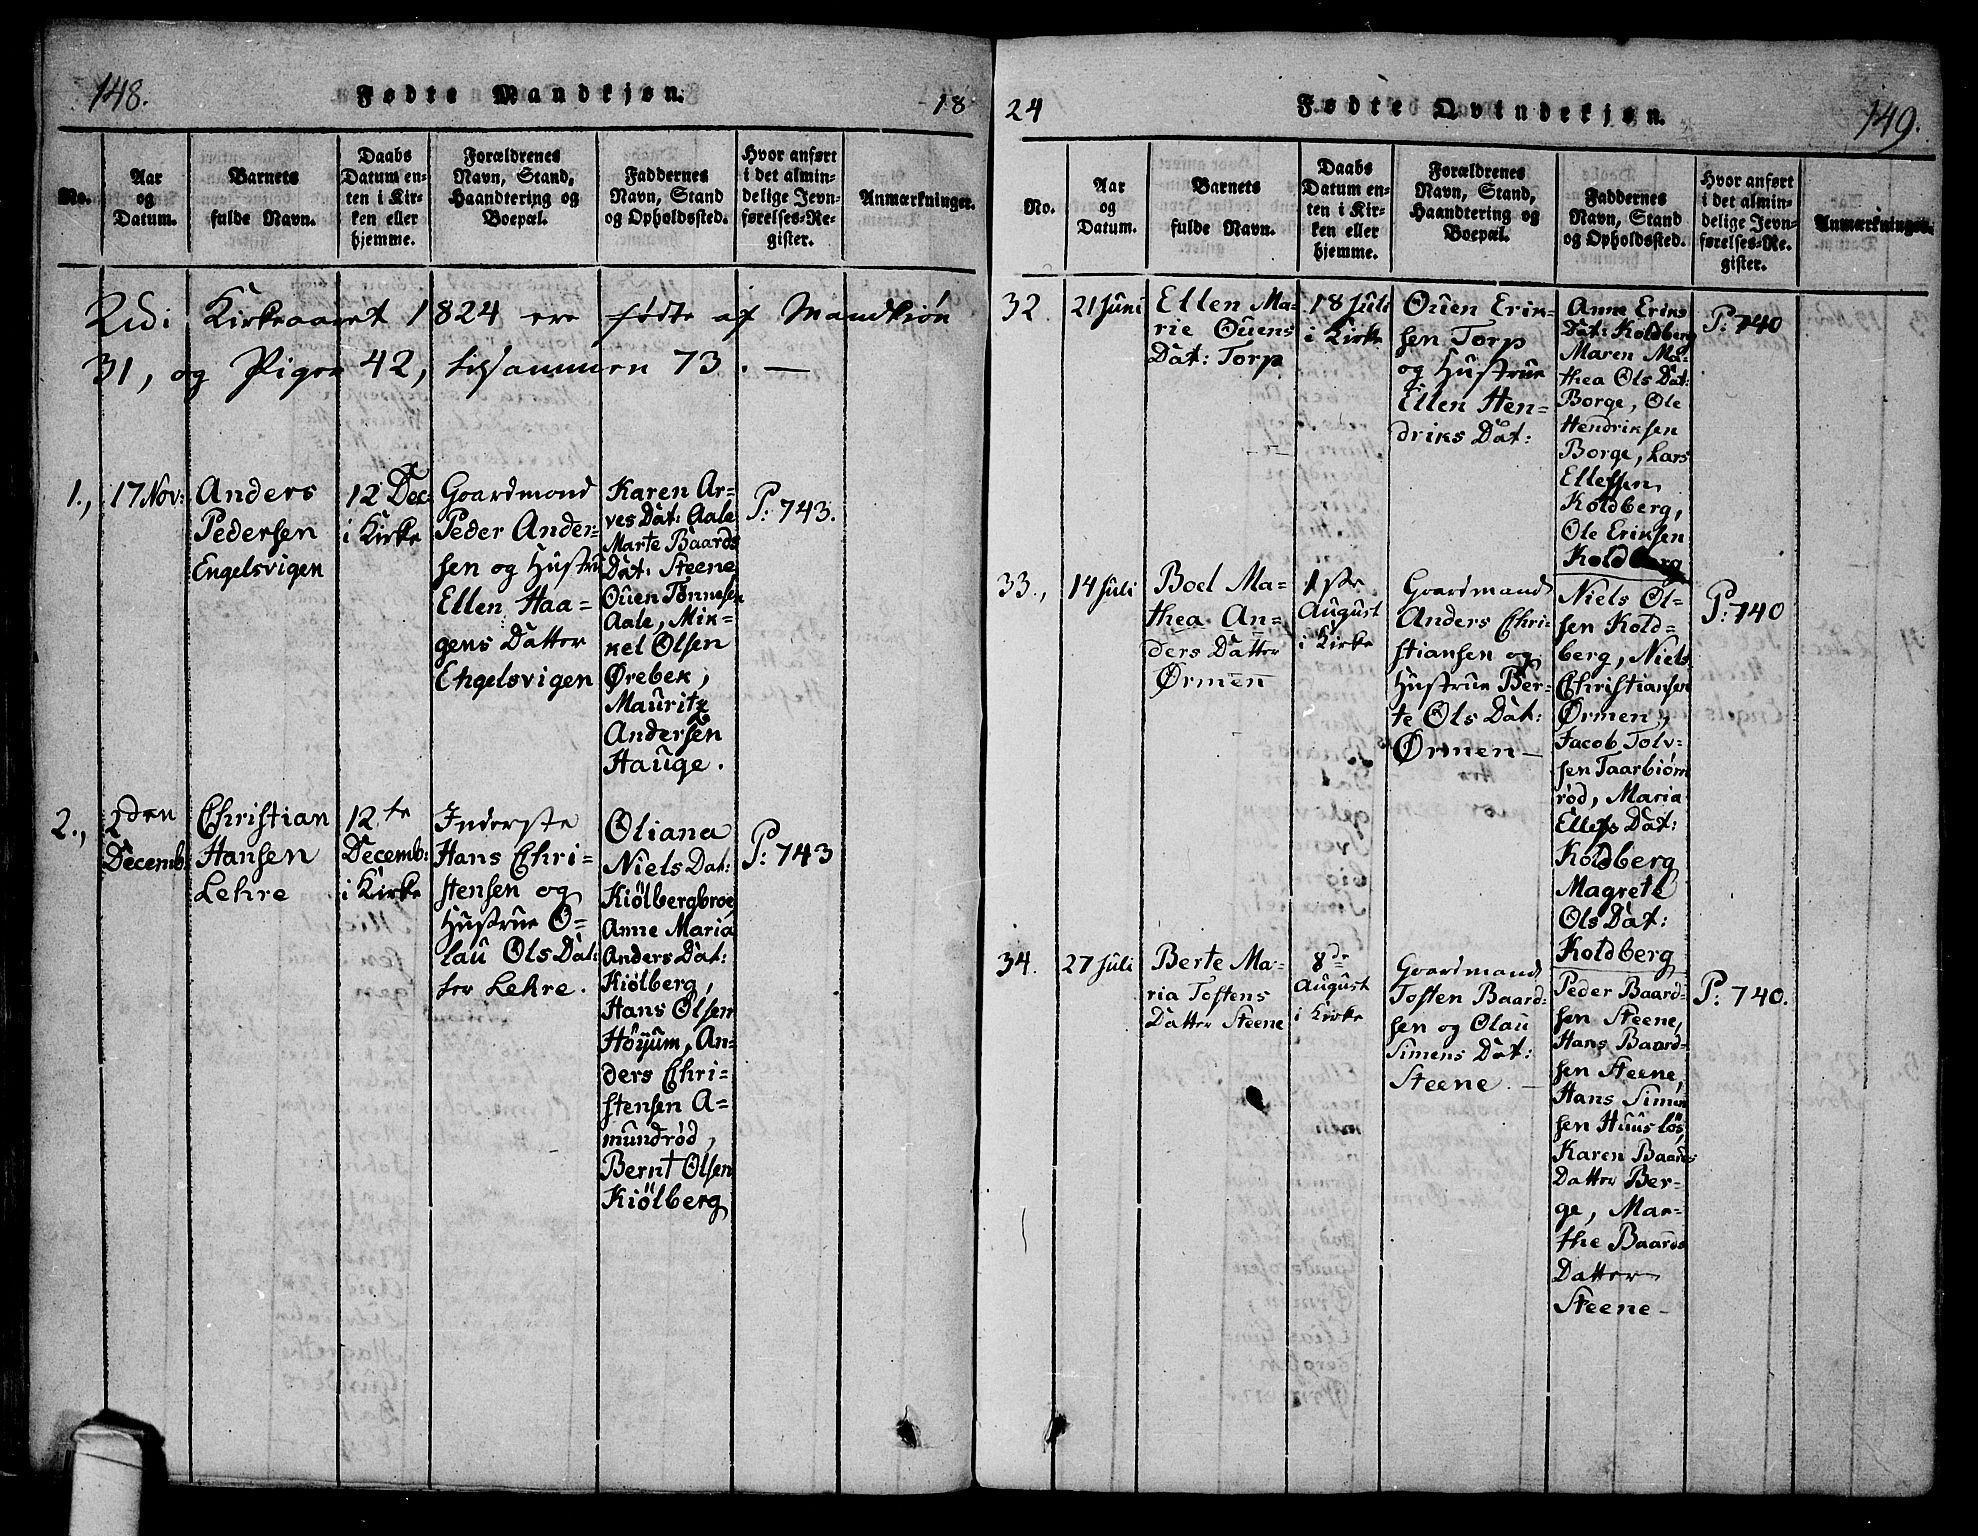 148.
Fødte Mandkjøn.
18
No.
Aar
og
Datum.
Barnets
fulde Navn.
Daabs
Datum en-
ten i Kir-
ken eller
hjemme.
Forældrenes
Navn, Stand,
Haandtering og
Boepæl.
Faddernes
Navn, Stand
og Opholdssted.
Hvor anført
i det almin-
delige Jevn-
førelses-Re-
gister.
Anmærkninger.
Udi Kirkeaaret 1824 ere fødte af Mandkiøn
31, og Piger 42, tilsammen 73. —
1.,
17 Nov:
Anders
Pedersen
Engelsvigen
12 Dec:
i Kirke
Goardmand
Peder Ander-
sen og Hustru
Ellen Haa-
gens Datter
Engelsvigen
Karen Ar-
ves Dat: Aale
Marte Baards
Dat: Steene
Ouen Tønnesen
Aale, Mik-
kel Olsen
Ørebek,
Mauritz
Andersen
Hauge.
P: 743.
2.,
2den
Decemb:
Christian
Hansen
Lehre
12te
Decemb:
i Kirke
Inderste
Hans Chri-
stensen og
Hustrue O-
lau Ols Dat-
ter Lehre.
Oliana
Niels Dat:
Kiölbergbroe,
Anne Maria
Anders Dat:
Kiölberg,
Hans Olsen
Höyum, An-
ders Chri-
stensen A-
mundrød,
Bernt Olsen
Kiölberg
P: 743
24
Fødte Qvindekjøn.
149.
No.
Aar
og
Datum.
Barnets
fulde Navn.
Daabs
Datum en-
ten i Kir-
ken eller
hjemme.
Forældrenes
Navn, Stand,
Haandtering og
Boepæl.
Faddernes
Navn, Stand
og Opholdssted.
Hvor anført
i det almin-
delige Jevn-
førelses-Re-
gister.
Anmærkninger.
32.
21 Juni
Ellen Ma-
rie Ouens
Dat: Torp
18 Juli
i Kirke
Ouen Erik-
sen Torp
og Hustrue
Ellen Hen-
driks Dat:
Anne Eriks
Dat: Koldberg
Maren Ma-
thea Ols Dat:
Borge, Ole
Hendriksen
Borge, Lars
Ellefsen
Koldberg,
Ole Eriksen
Koldberg
P: 740
33.,
14 Juli
Boel Ma-
thea An-
ders Datter
Ørmen
1ste
August
i Kirke
Goardmand
Anders Chri-
stiansen og
Hustrue Ber-
te Ols Dat:
Ørmen —
Niels Ol-
sen Kold-
berg, Niels
Christiansen
Ørmen,
Jacob Tolv-
sen Taarbiørn
rød, Maria
Ellefs Dat:
Koldberg
Magrete
Ols Dat:
Koldberg
P: 740
34.
27 Juli
Berte Ma-
ria Tostens
Datter Steene
8de
August
i Kirke
Goardmand
Tosten Baard-
sen og Olau
Simens Dat:
Steene. —
Peder Baard-
sen Steene,
Hans Baard-
sen Steene,
Hans Simen
sen Huusløs,
Karen Baards
Datter Ber-
ge, Mar-
the Baards
Datter
Steene —
P: 740.